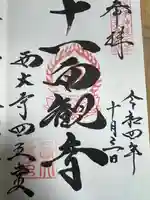 奉拝
令和四年
十月三一日
十一面観音
西大寺四王堂